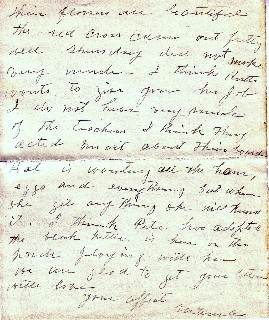 their flowers are beautiful
the red cross came out pretty
well Thursday did not make
very much. I think
wants to give your his job
I do not hear very much
of the I think they
acted most about their
is wanting all the ham,
eggs and everything but when
she gets any thing she will know
it. I think Pete has adopted
the black kitten is here on the
porch playing with her
we are glad to get your letter
with love
your affect